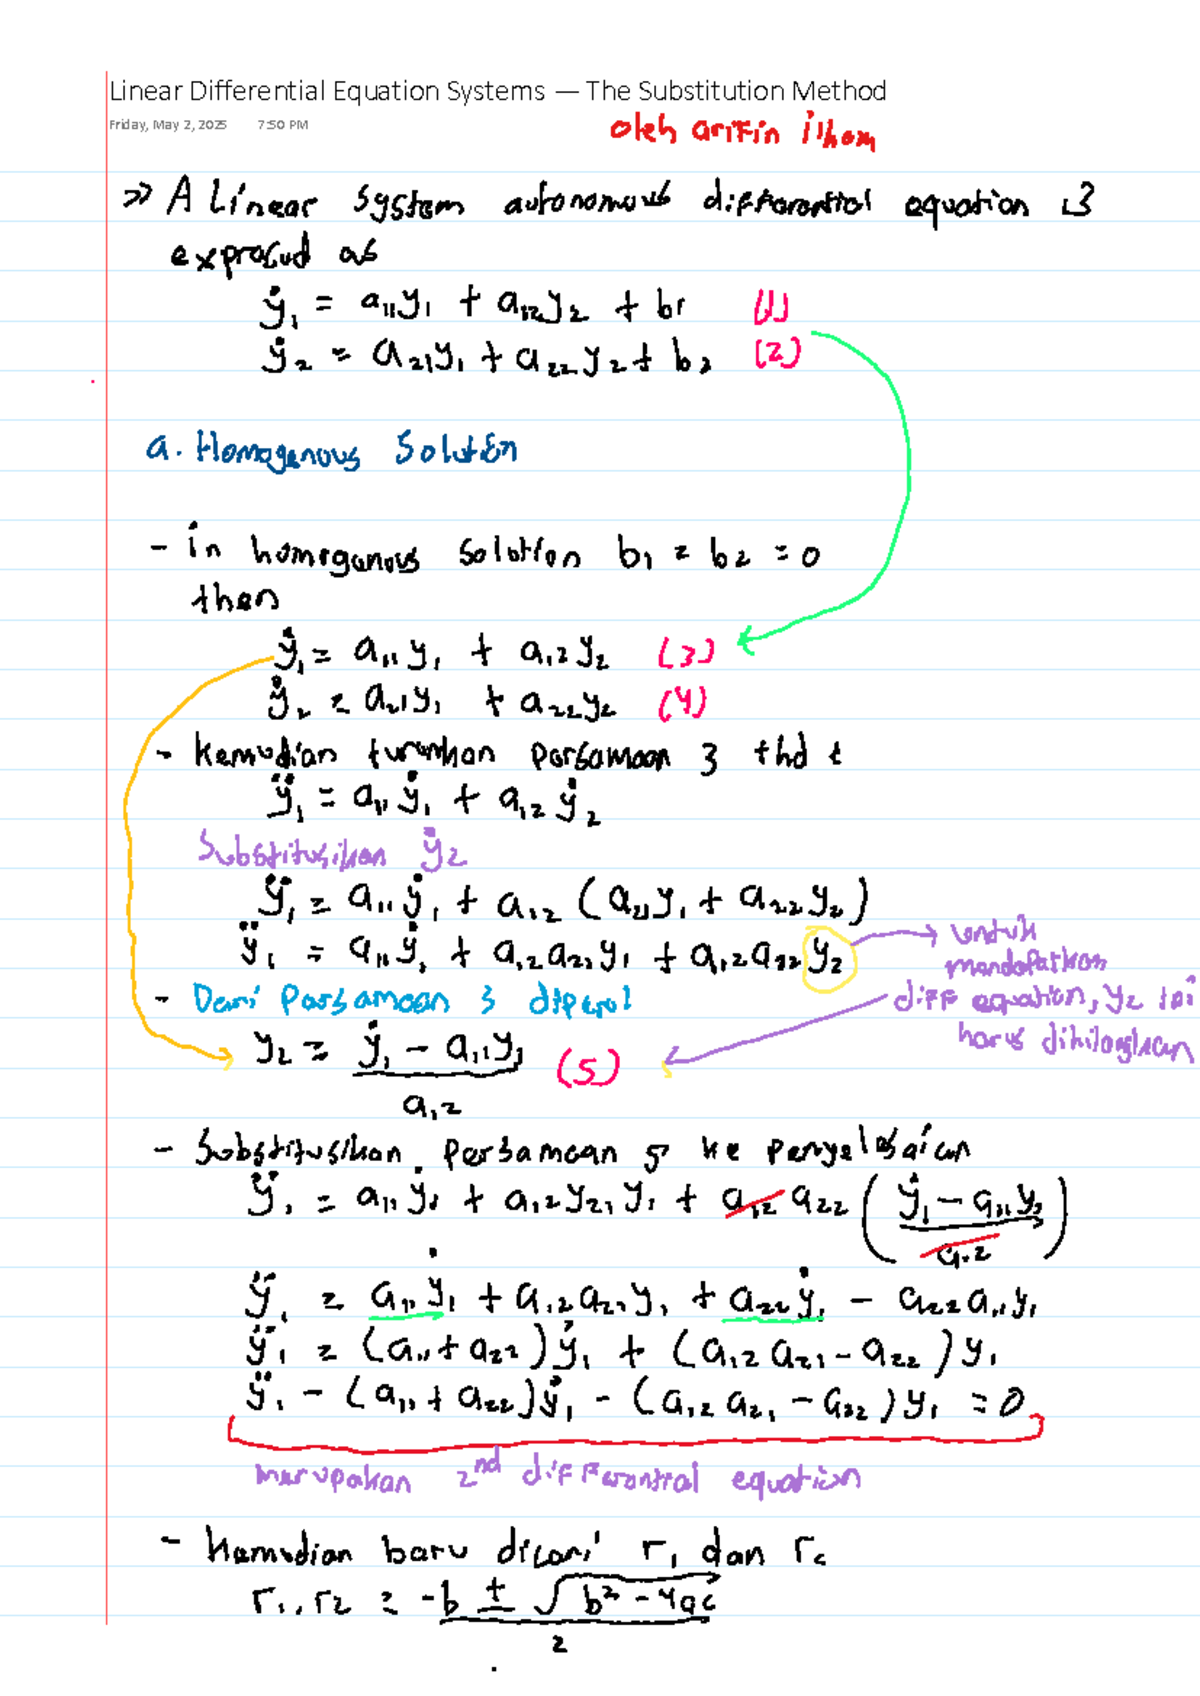 Linear Differential Equation Systems — The Substitution Method
Friday, May 2, 2025 7:50 PM
oleh arifin ilham
>> A Linear system autonomous differential equation is
expressed as
ẏ₁ = a₁₁y₁ + a₁₂y₂ + b₁ (1)
ẏ₂ = a₂₁y₁ + a₂₂y₂ + b₂ (2)
a. Homogenous Solution
- in homogenous solution b₁ = b₂ = 0
then
ẏ₁ = a₁₁y₁ + a₁₂y₂ (3)
ẏ₂ = a₂₁y₁ + a₂₂y₂ (4)
- Kemudian turunkan persamaan 3 thd t
ÿ₁ = a₁₁ẏ₁ + a₁₂ẏ₂
Substitusikan ẏ₂
ÿ₁ = a₁₁ẏ₁ + a₁₂(a₂₁y₁ + a₂₂y₂)
ÿ₁ = a₁₁ẏ₁ + a₁₂a₂₁y₁ + a₁₂a₂₂y₂
untuk
mendapatkan
diff equation, y₂ ini
harus dihilangkan
- Dari Persamaan 3 diperol
y₂ = (ẏ₁ - a₁₁y₁)/a₁₂ (5)
- Substitusikan persamaan 5 ke penyelesaian
ÿ₁ = a₁₁ẏ₁ + a₁₂y₂₁y₁ + a₁₂a₂₂((ẏ₁ - a₁₁y₁)/a₁₂)
ÿ₁ = a₁₁ẏ₁ + a₁₂a₂₁y₁ + a₂₂ẏ₁ - a₂₂a₁₁y₁
ÿ₁ = (a₁₁ + a₂₂)ẏ₁ + (a₁₂a₂₁ - a₂₂)y₁
ÿ₁ - (a₁₁ + a₂₂)ẏ₁ - (a₁₂a₂₁ - a₂₂)y₁ = 0
merupakan 2nd differential equation
- Kemudian baru dicari r₁ dan r₂
r₁, r₂ = (-b ± √(b² - 4ac))/2